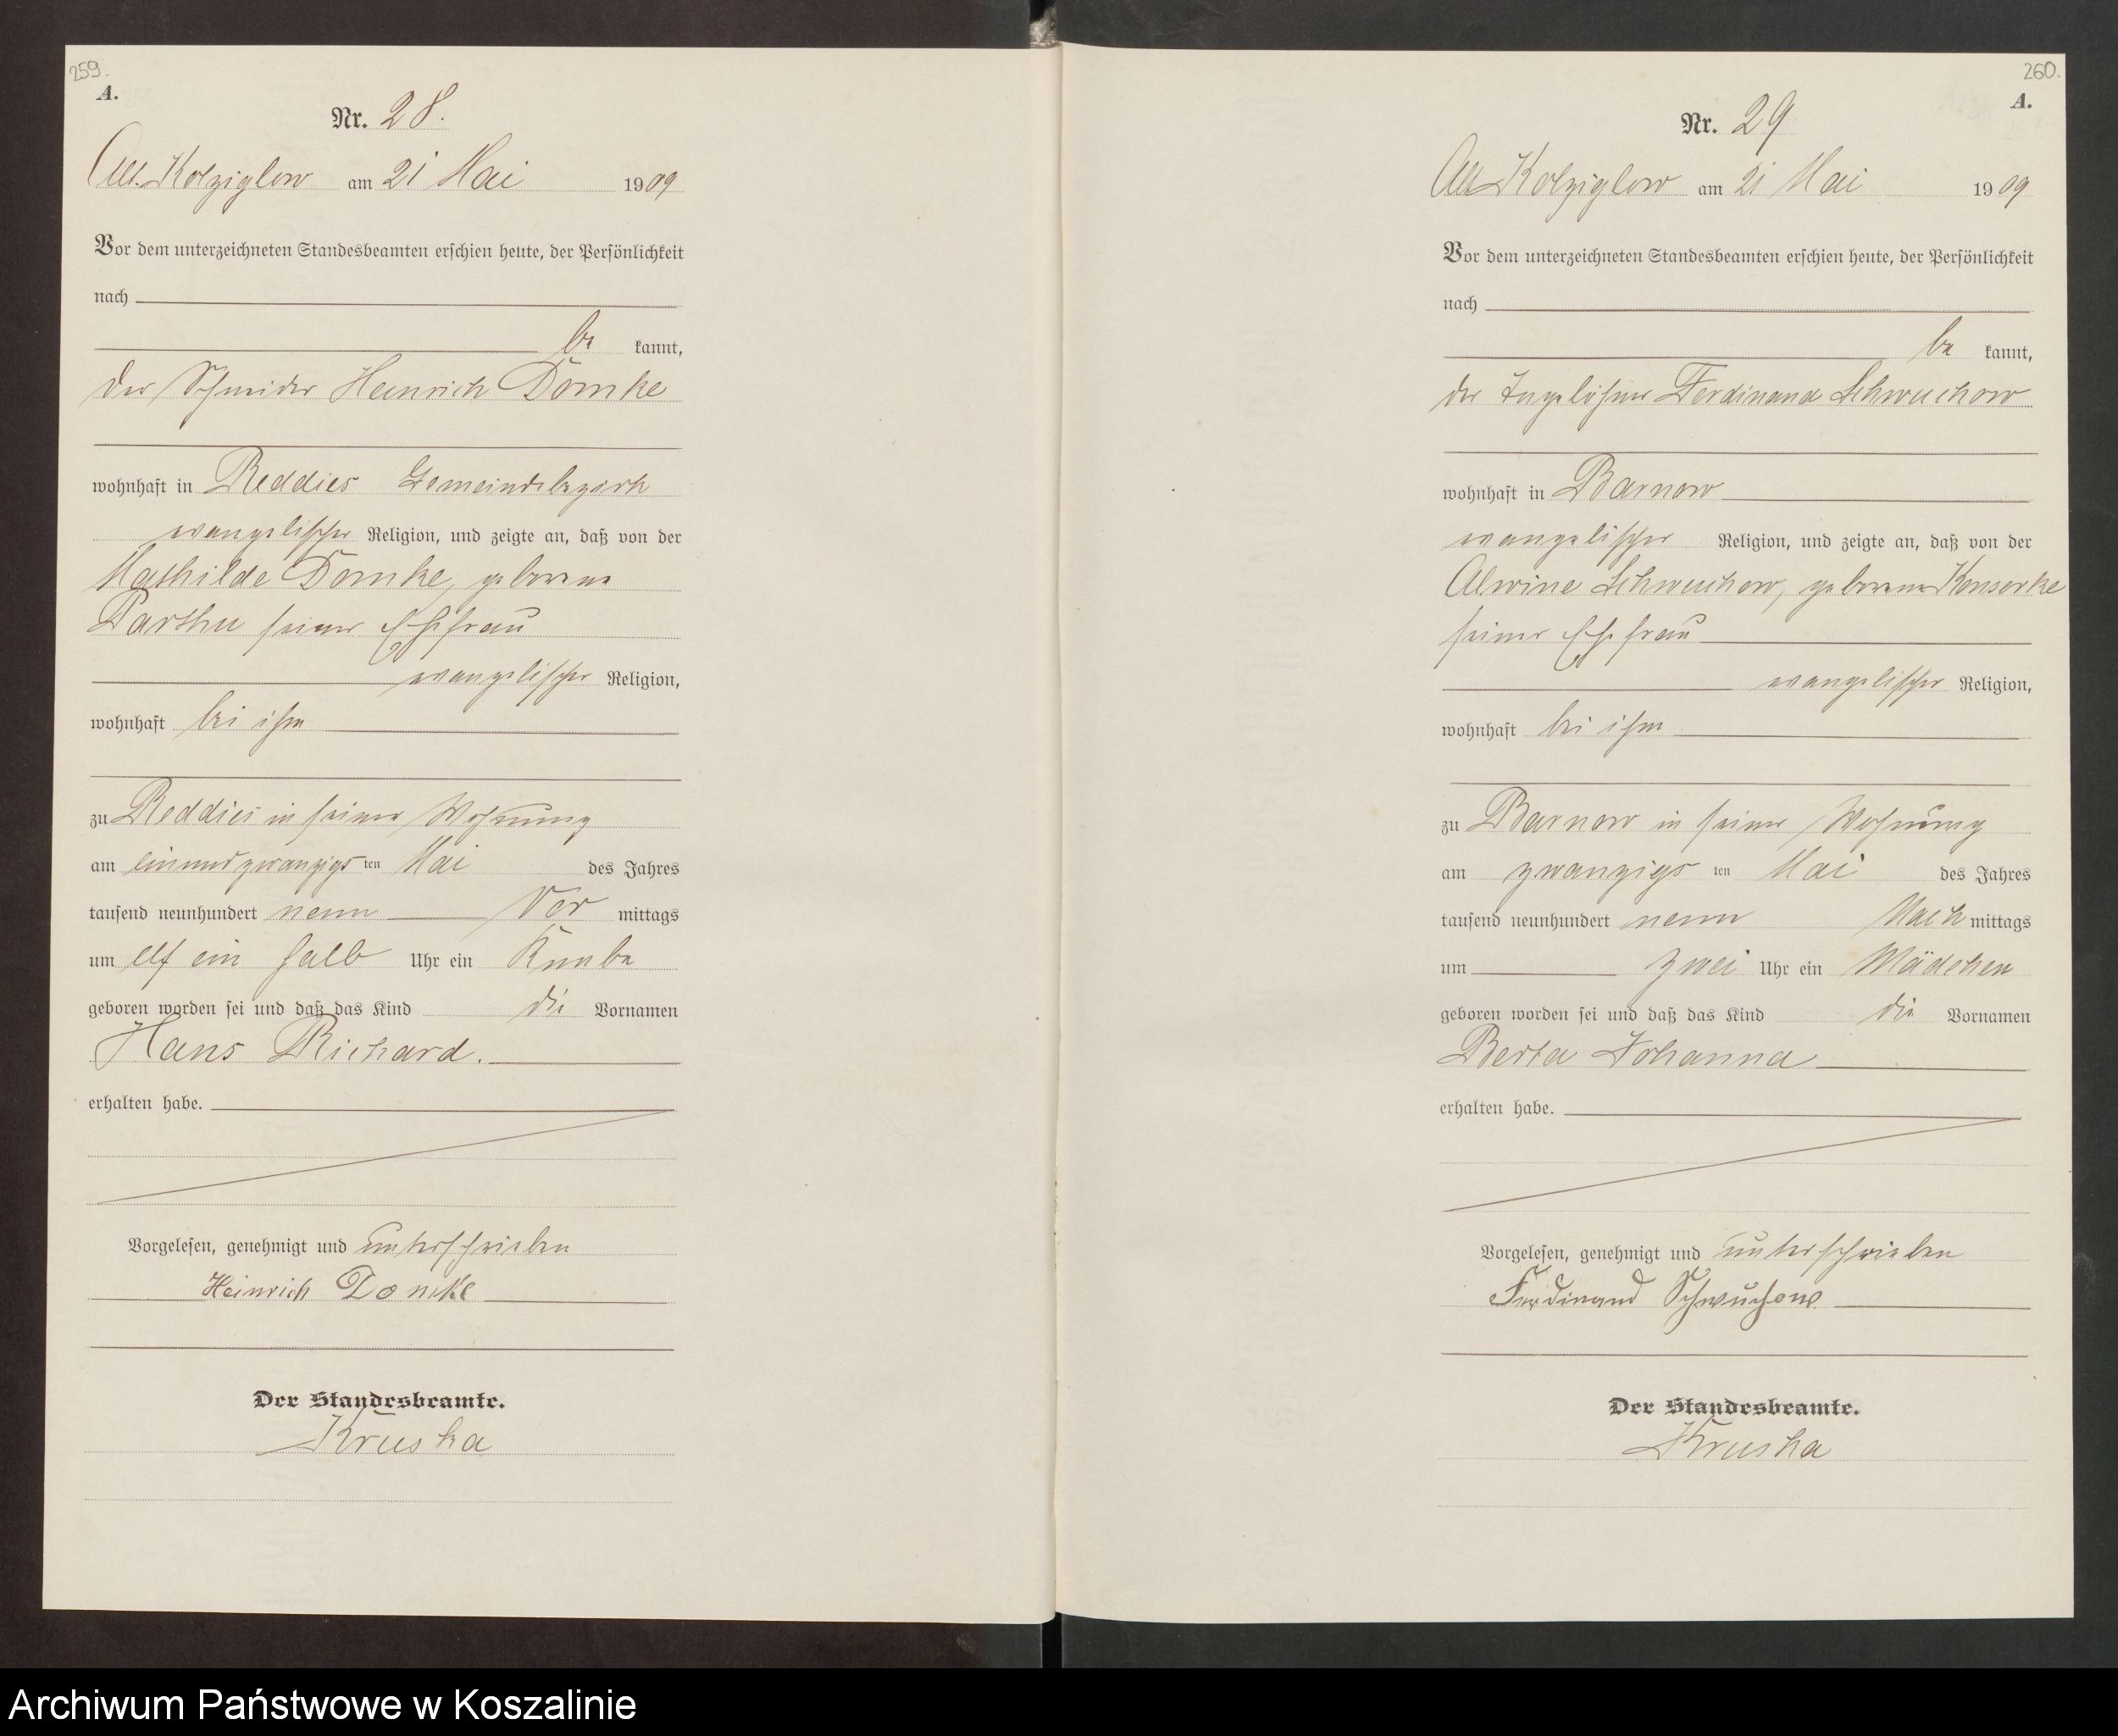 259.
A.
Nr. 28.
Alt-Kolziglow am 21 Mai 1909
Vor dem unterzeichneten Standesbeamten erschien heute, der Persönlichkeit
nach
be kannt,
der Schneider Heinrich Domke
wohnhaft in Reddies Gemeindebezirk
evangelischer Religion, und zeigte an, daß von der
Mathilde Domke, geborene
seiner Ehefrau
evangelischer Religion,
wohnhaft bei ihm
zu Reddies in seiner Wohnung
am einundzwanzigs ten Mai des Jahres
tausend neunhundert neun Vor mittags
um elf ein halb Uhr ein Knabe
geboren worden sei und daß das Kind die Vornamen
Hans Richard.
erhalten habe.
Vorgelesen, genehmigt und unterschrieben
Heinrich Domke
Der Standesbeamte.
Kruska
260.
A.
Nr. 29
Alt Kolziglow am 21 Mai 1909
Vor dem unterzeichneten Standesbeamten erschien heute, der Persönlichkeit
nach
be kannt,
der Tagelöhner Ferdinand Schwuchow
wohnhaft in Barnow
evangelischer Religion, und zeigte an, daß von der
Alwine Schwuchow, geborene
seiner Ehefrau
evangelischer Religion,
wohnhaft bei ihm
zu Barnow in seiner Wohnung
am zwanzigs ten Mai des Jahres
tausend neunhundert neun Nach mittags
um zwei Uhr ein Mädchen
geboren worden sei und daß das Kind die Vornamen
Berta Johanna
erhalten habe.
Vorgelesen, genehmigt und unterschrieben
Ferdinand Schwuchow
Der Standesbeamte.
Kruska
Archiwum Państwowe w Koszalinie